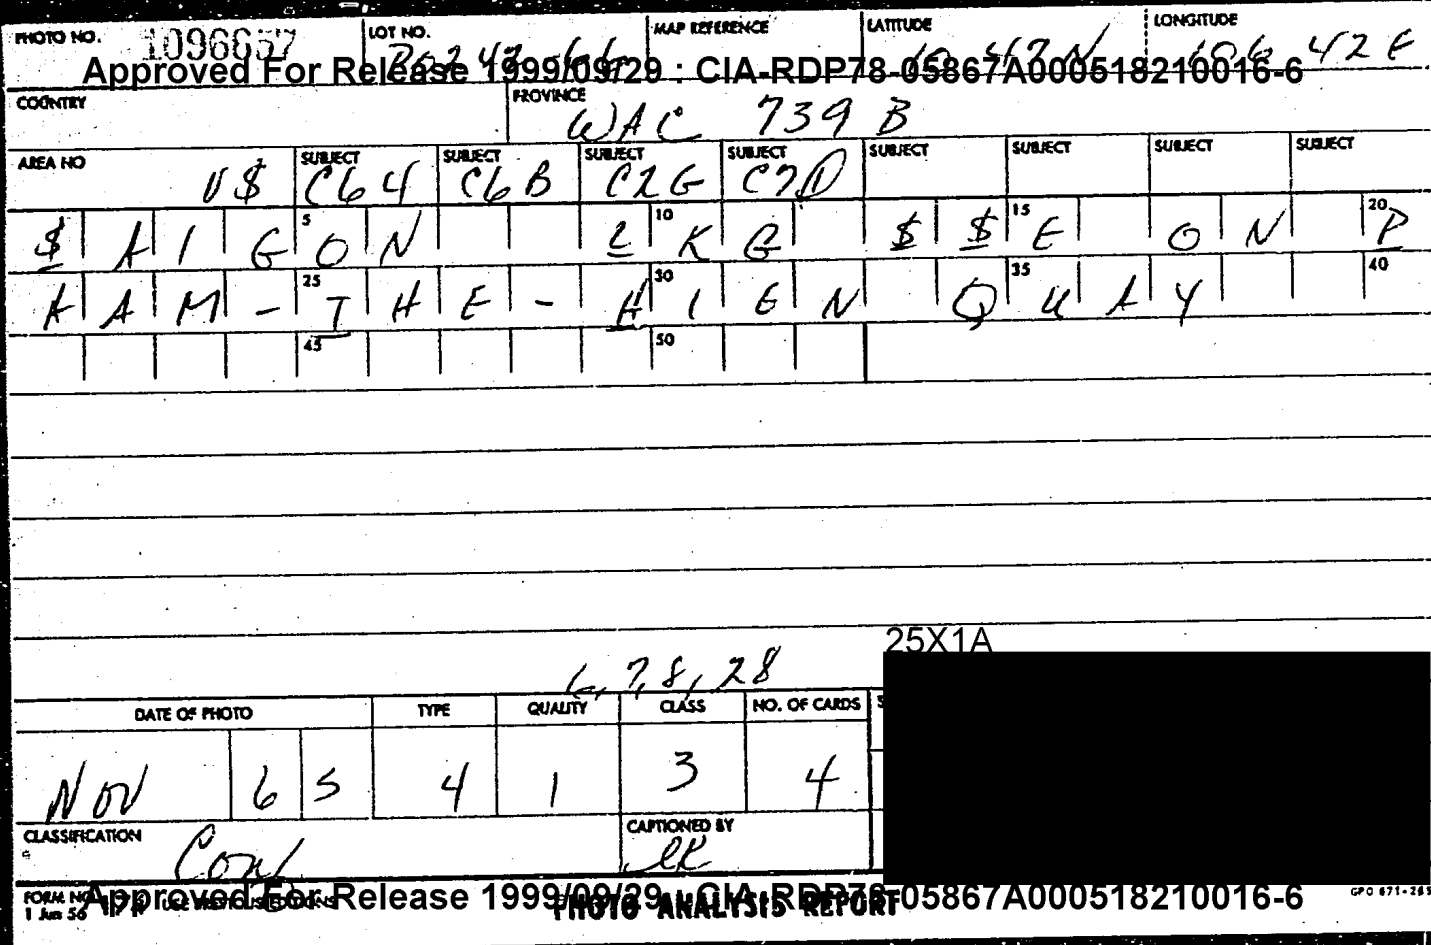 PHOTO NO. 1096657 LOT NO. MAP REFERENCE LATITUDE 10 47N LONGITUDE 106 42 E
Approved For Release 1999/09/29 : CIA-RDP78-05867A000518210016-6
COUNTRY PROVINCE WAC 739 B
AREA NO V$ SUBJECT C64 SUBJECT C6B SUBJECT C2G SUBJECT C7D SUBJECT SUBJECT SUBJECT SUBJECT
5 10 15 20
$ A I G O N 2 K G $ $ E O N P
25 30 35 40
A A M - T H E - H I E N Q U A Y
45 50
25X1A
6, 7, 8, 28
DATE OF PHOTO TYPE QUALITY CLASS NO. OF CARDS
NOV 6 5 4 1 3 4
CLASSIFICATION Con CAPTIONED BY
FORM NO.
1 Jun 56
Approved For Release 1999/09/29 : CIA-RDP78-05867A000518210016-6
PHOTO ANALYSIS REPORT